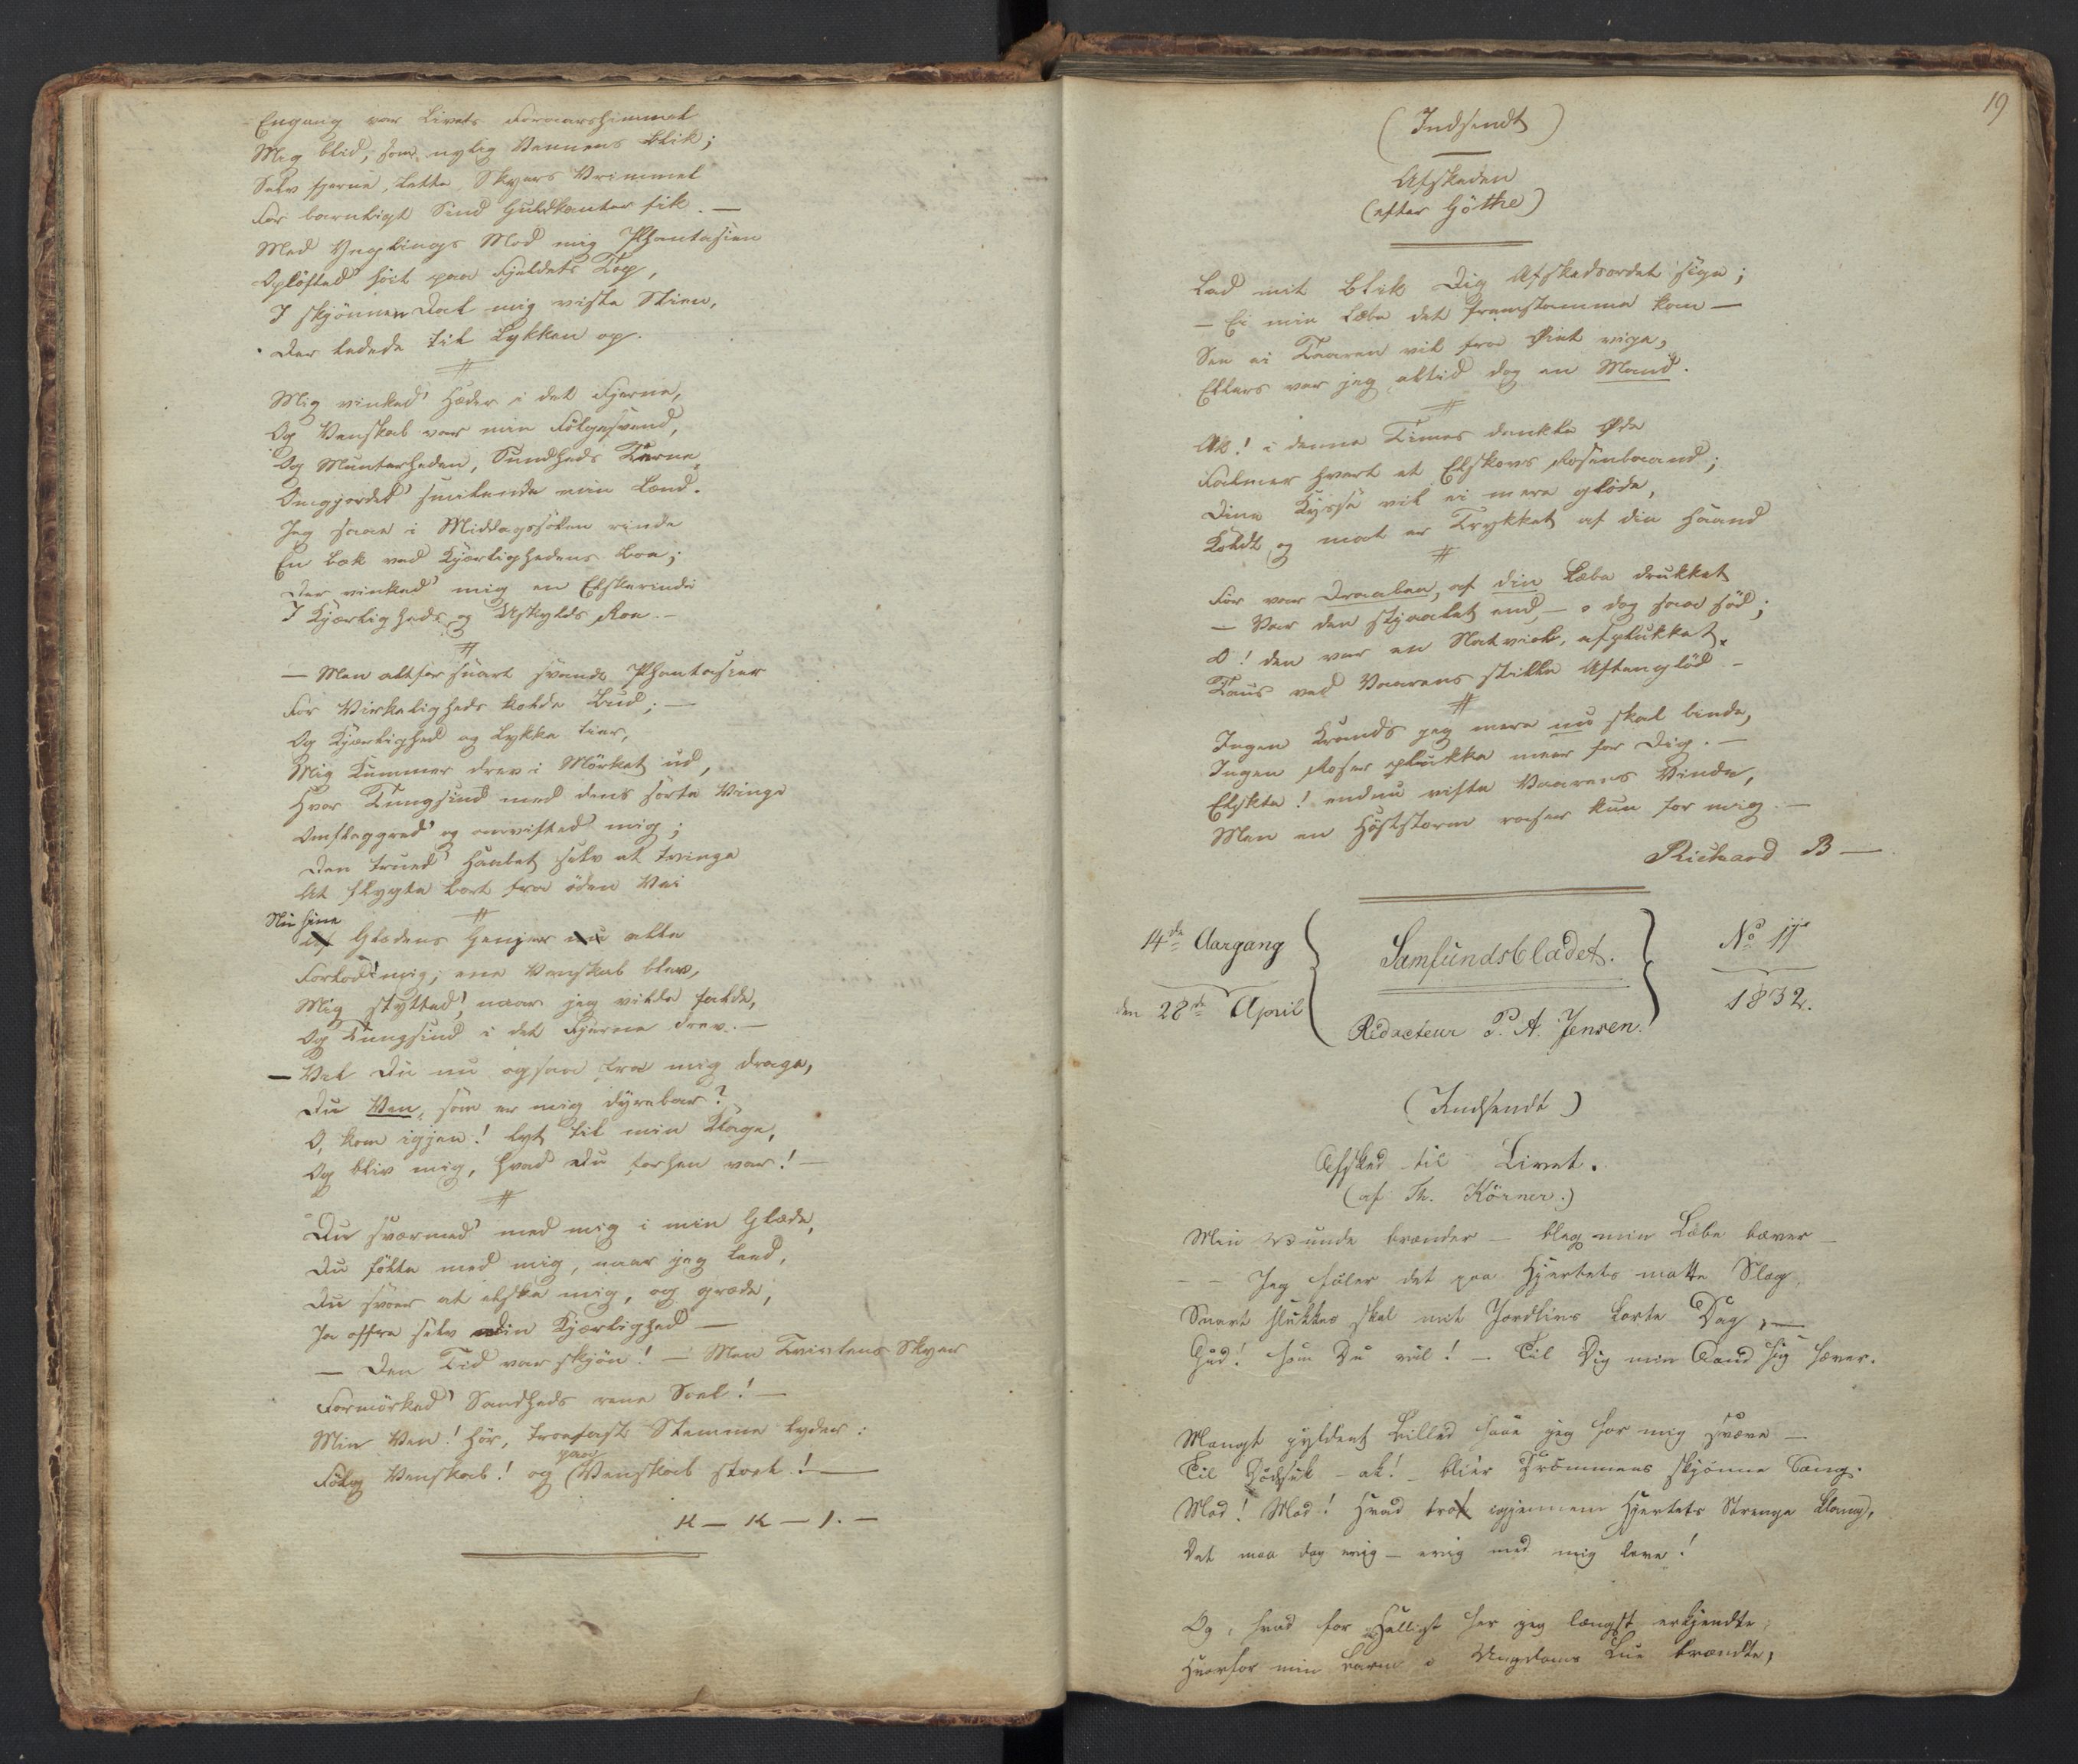 Engang var Livets Foraarshimmel
Mig blid, som nylig Vennens Blik;
Selv fjerne, lette Skyers Vrimmel
For barnligt Sind Guldkanter fik. —
Med Ynglings Mod mig Phantasien
Opløfted' høit paa Fjeldets Top,
I skjønnen Dal mig viste Stien,
Der ledede til Lykken op.
#
Mig vinked' Hæder i det Fjerne,
Og Venskab var min Følgesvend,
Og Munterheden, Sundheds Terne,
Omgjorded' smilende min Lend.
Jeg saae i Middagssolen rinde
En Bæk ved Kjærlighedens Boe;
Der vinked' mig en Elskerinde
I Kjærligheds og Uskylds Roe. —
#
— Men altfor snart svandt Phantasier
For Virkeligheds kolde Bud; —
Og Kjærlighed og Lykke tier,
Mig Kummer drev i Mørket ud,
Hvor Tungsind med dens sorte Vinge
Omflaggred' og omvifted' mig;
Den trued' Haabet selv at tvinge
At flygte bort fra øden Vei
#
Nu sine
af Glædens Genier nu alle
Forlod mig; ene Venskab blev,
Mig støtted', naar jeg vilde falde,
Og Tungsind i det Fjerne drev. —
— Vil Du nu ogsaa fra mig drage,
Du Ven, som er mig dyrebar?
O, kom igjen! lyt til min Klage,
Og bliv mig, hvad Du forhen var! —
#
Du sværmed' med mig i min Glæde,
Du følte med mig, naar jeg leed,
Du svoer at elske mig, og græde,
Ja offre selv din Kjærlighed —
— Den Tid var skjøn! — Men Tvivlens Skyer
Formørked' Sandheds rene Soel! —
Min Ven! hør, trofast Stemme lyder:
paa
Følg Venskab! og Venskab stoel! —
K — K — l. —
19
(Indsendt)
Afskeden
(efter Göthe)
Lad mit Blik Dig Afskedsordet sige;
— Ei min Læbe det fremstamme kan —
See ei Taaren vil fra Øiet vige,
Ellers var jeg altid dog en Mand.
#
Ak! i denne Times dunkle Øde
Falmer hvert et Elskovs Rosenbaand;
Dine Kysse vil ei mere gløde,
Koldt og mat er Trykket af din Haand
#
Før var Draaben, af din Læbe drukket
— Var den stjaalet end — o dog saa sød;
O! den var en Natviol, afplukket
Taus ved Vaarens stille Aftenglød —
#
Ingen Krands jeg mere nu skal binde,
Ingen Roser plukke meer for Dig. —
Elskte! endnu vifte Vaarens Vinde,
Men en Høststorm raser kun for mig. —
Richard B —
14de Aargang
den 28de April
Samfundsbladet.
Redacteur P. A. Jensen.
No 17
1832.
(Indsendt)
Afsked til Livet.
(af Th. Körner.)
Min Vunde brænder — bleg min Læbe bæver —
— — Jeg føler det paa Hjertets matte Slag,
Snart sluttes skal mit Jordlivs korte Dag, —
Gud! som Du vil! — Til Dig min Aand sig hæver.
Mangt gyldent Billed saae jeg for mig svæve —
Til Dødssuk — ak! — blier Drømmens skjønne Sang.
Mod! Mod! Hvad trof igjennem Hjertets Strenge klang,
Det maa dog evig — evig med mig leve!
Og, hvad for Helligt her jeg længst erkjendte,
Hvorfor min Barm i Ungdoms Lue brændte,